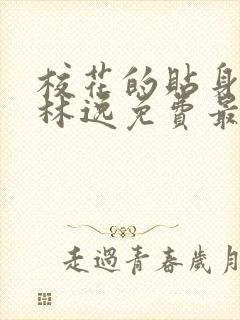 校花的贴身
林逸免费最
走過青春歲月